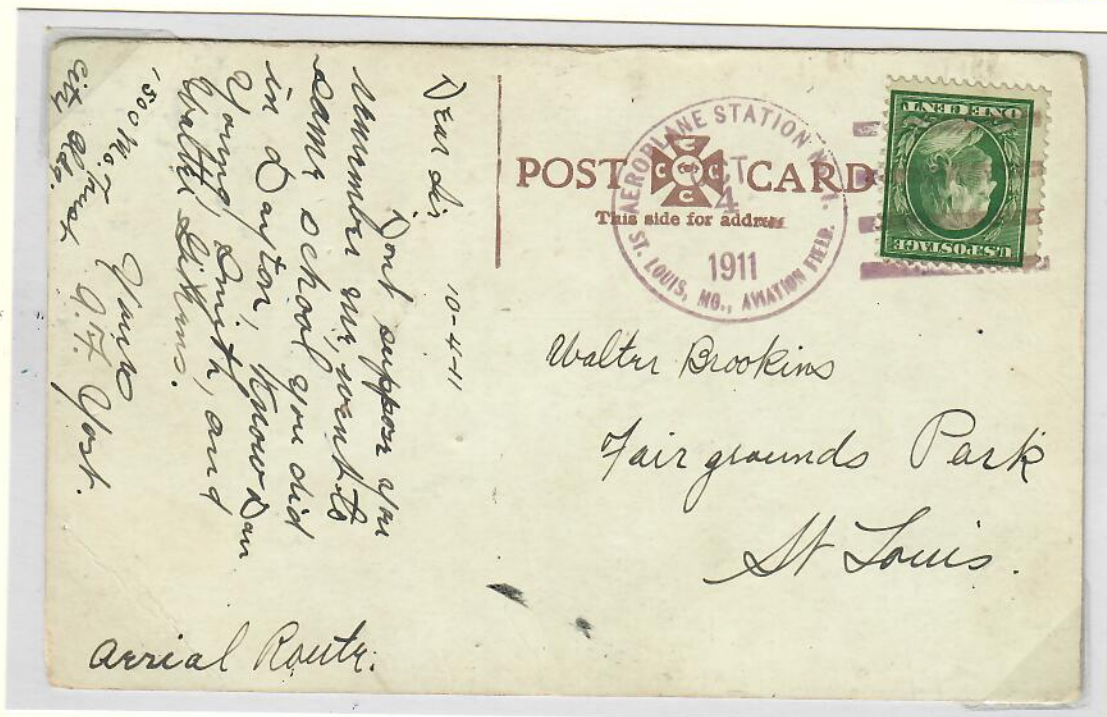 POST CARD
This side for address
AEROPLANE STATION N 1.
OCT
4
1911
ST. LOUIS, MO., AVIATION FIELD.
U.S. POSTAGE
ONE CENT
Walter Brookins
Fairgrounds Park
St Louis.
10-4-11
Dear Sir
Dont suppose you
remember me, went to
same school you did
in Dayton, know Dan
Young, Smith, and
Walter
Yours
A.F. Yost.
1500 Mo. Trust
City Bldg.
Aerial Route.